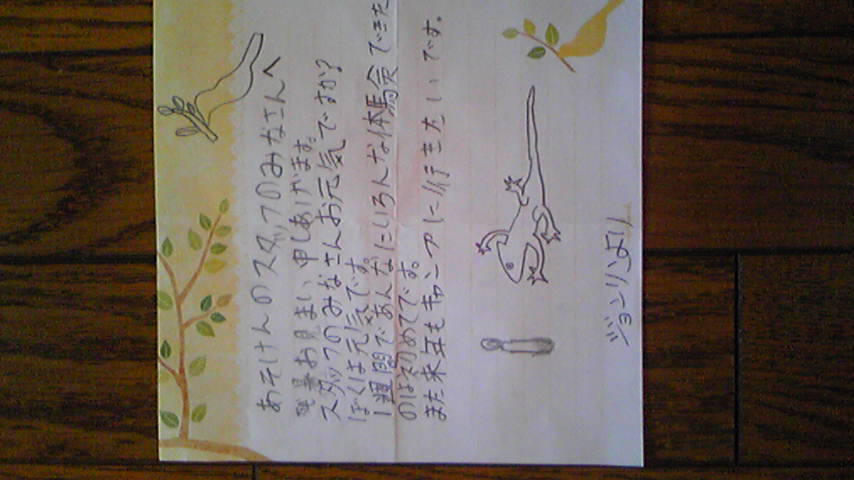 あそけんのスタッフのみなさんへ
残暑お見まい申しあげます。
スタッフのみなさんお元気ですか?
ぼくは元気です。
1週間であんなにいろんな体験できた
のは初めてです。
また来年もキャンプに行きたいです。
ジョンリンより